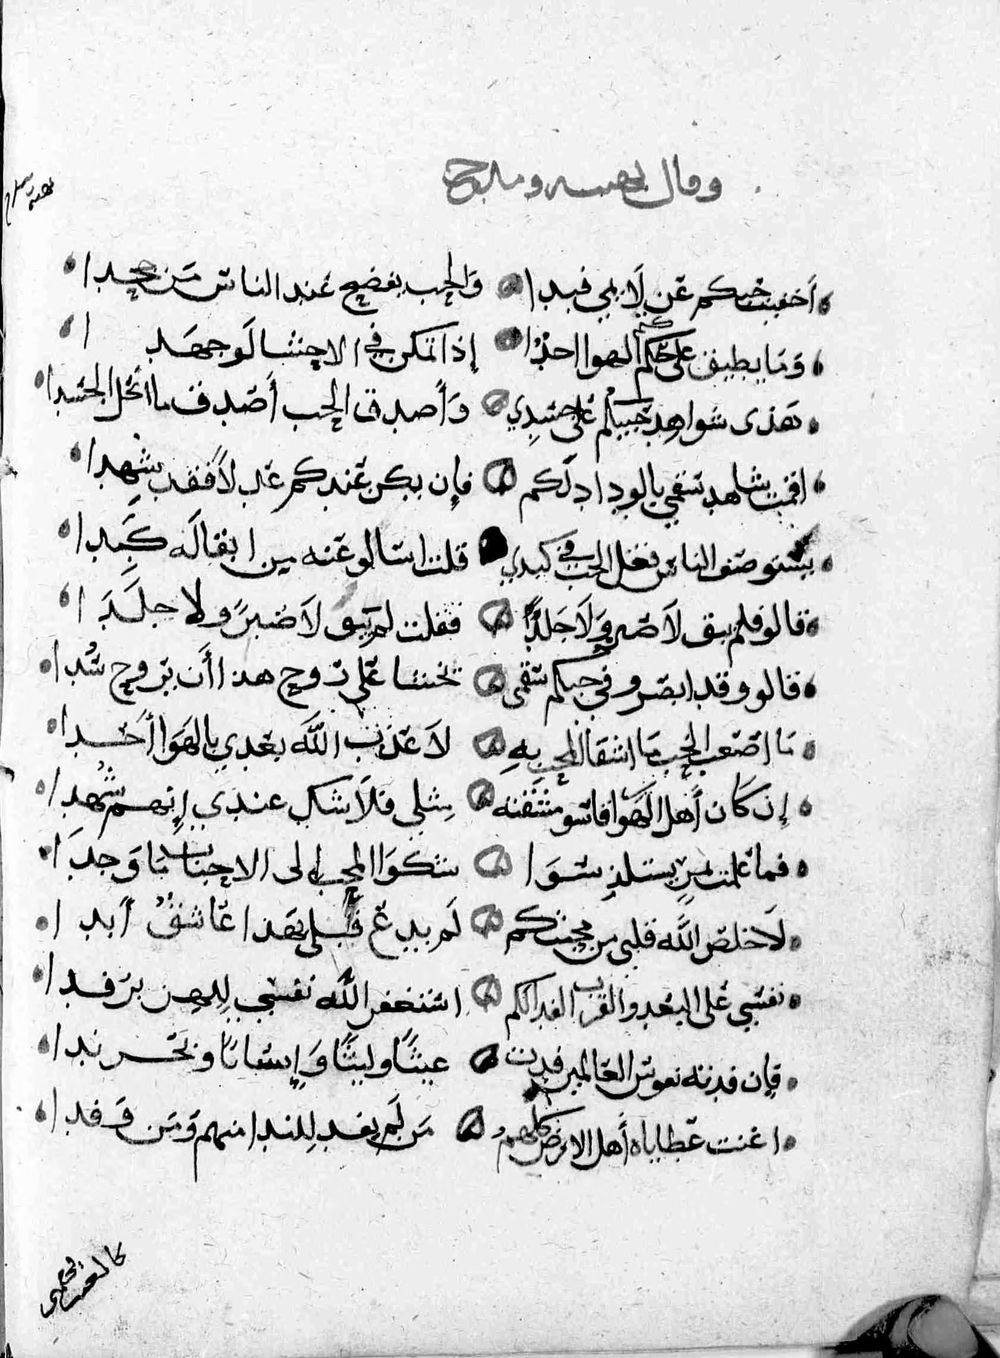 وقال يهنيه ويمدح
أخفيت حبكم عن لايمي فبدا والحب يفضح عند الناس من جحدا
وما يطيق على حكم الهوا احدا إذا تمكن في الاحشا لو جهدا
هذى شواهد حبيكم على جسدي وأصدق الحب أصدق ما انحل الجسدا
اقمت شاهد سقمي بالوداد لكم فإن يكن عندكم عدلا فقد شهدا
يستوصف الناس فعل الحب في كبدي قلت اسالو عنه من ابقا له كبدا
قالو فلم يبق لا صبر ولا جلدا فقلت لم يبق لا صبر ولا جلدا
قالو وقد ابصرو في حبكم سقمى تخشا على روح هذا أن تروح سدا
ما اصعب الحب ما اشقا المحب به لا عذب الله بعدي بالهوا أحدا
إن كان أهل الهوا قاسو مشقته مثلي فلا شك عندي إنهم شهدا
فما علمت بمن يستلذ سوا شكوا المحب إلى الاحباب ما وجدا
لا خلص الله قلبي من محبتكم لم يدع قبلي بهذا عاشق أبدا
نفسي على البعد والقرب الفدا لكم استغفر الله نفسي للمعز فدا
فإن فدته نفوس العالمين فدت غيثا وليثا وإنسانا وبحر ندا
اغنت عطاياه أهل الارض كلهم من لم يفد للندا منهم ومن وفدا